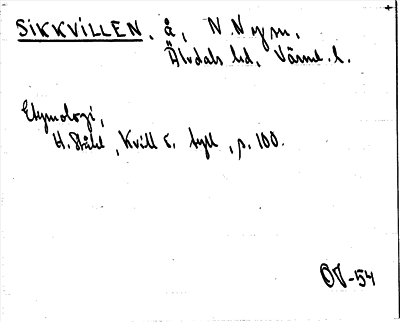 SIKKVILLEN, å, N. Ny sn,
Älvdals hd, Värml. l.
Etymologi,
H. Ståhl, Kvill o. tyll, p. 100.
OV-54